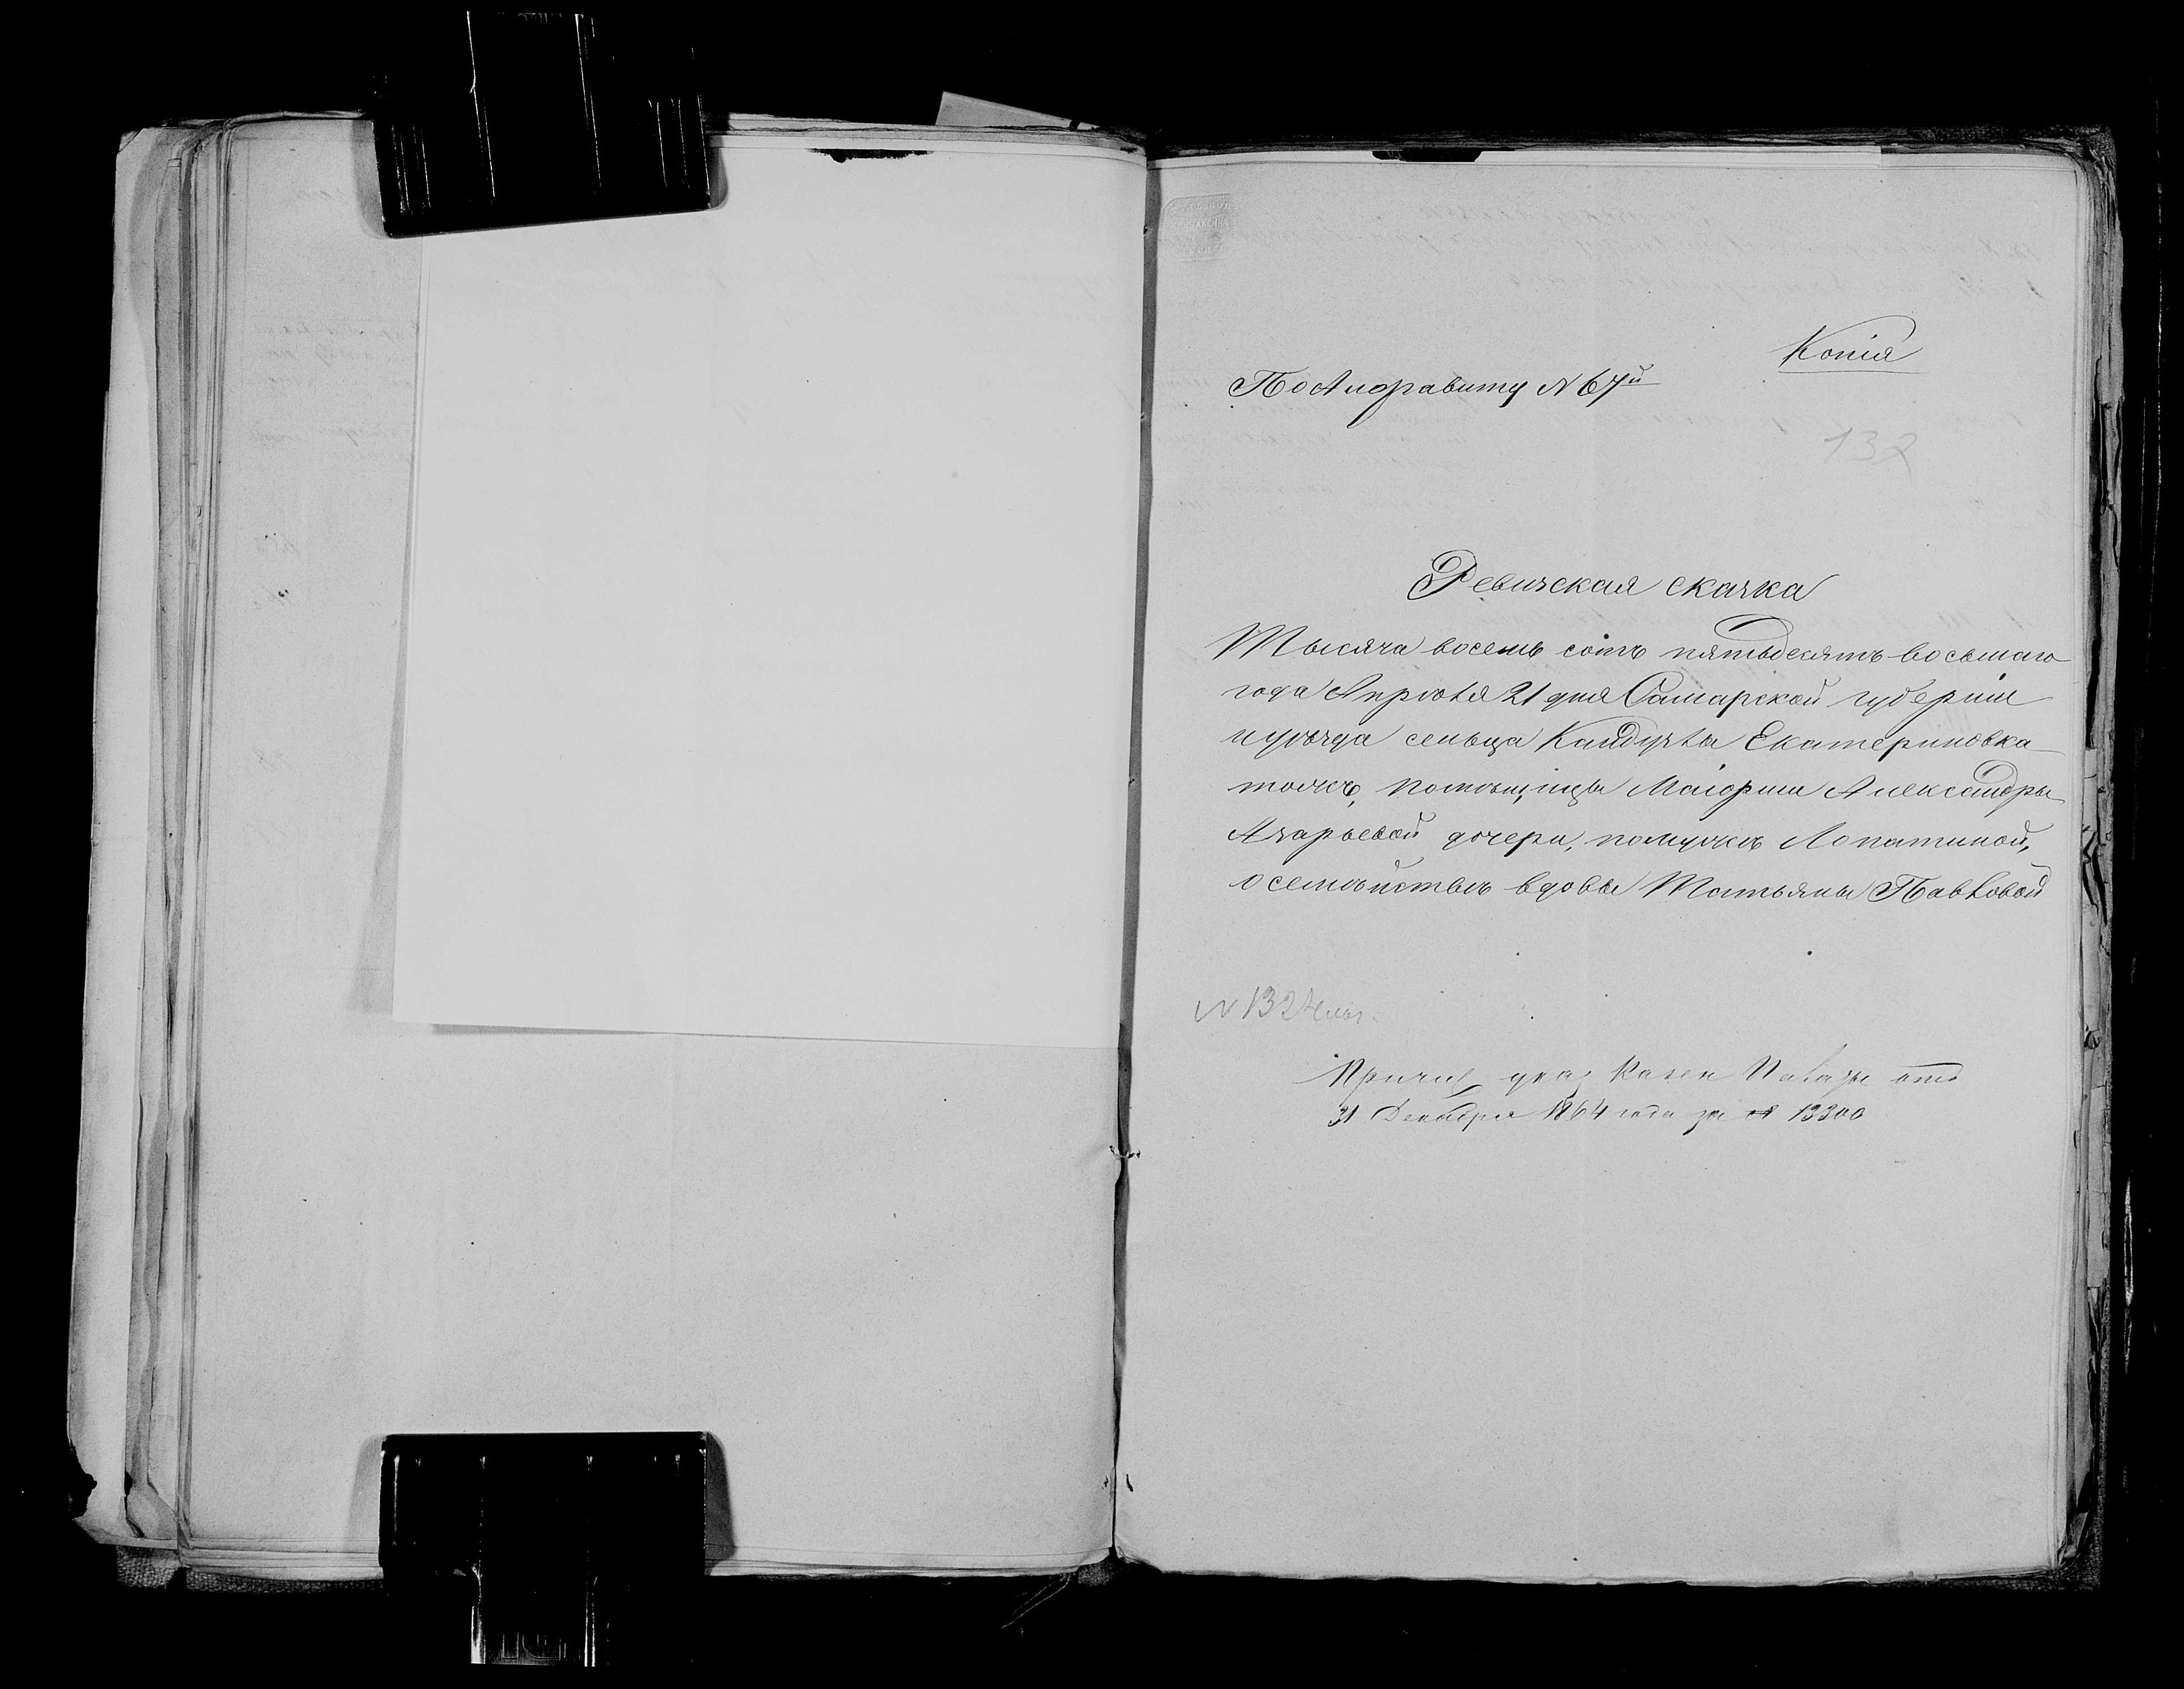 Копія
По Алфавиту N 67й
132
Ревизская сказка
Тысяча восемь сотъ пятьдесятъ восьмаго
года Апрѣля 21 дня Самарской губерніи
и уѣзда сельца Кандузлы Екатериновка
тожъ, помѣщицы Маіорши Александры
Азарьевой дочери, по мужѣ Лопатиной,
о семѣйствѣ вдовы Татьяны Павловой
N 132
Причис указ Казен Палаты отъ
31 Декабря 1864 года за № 13300